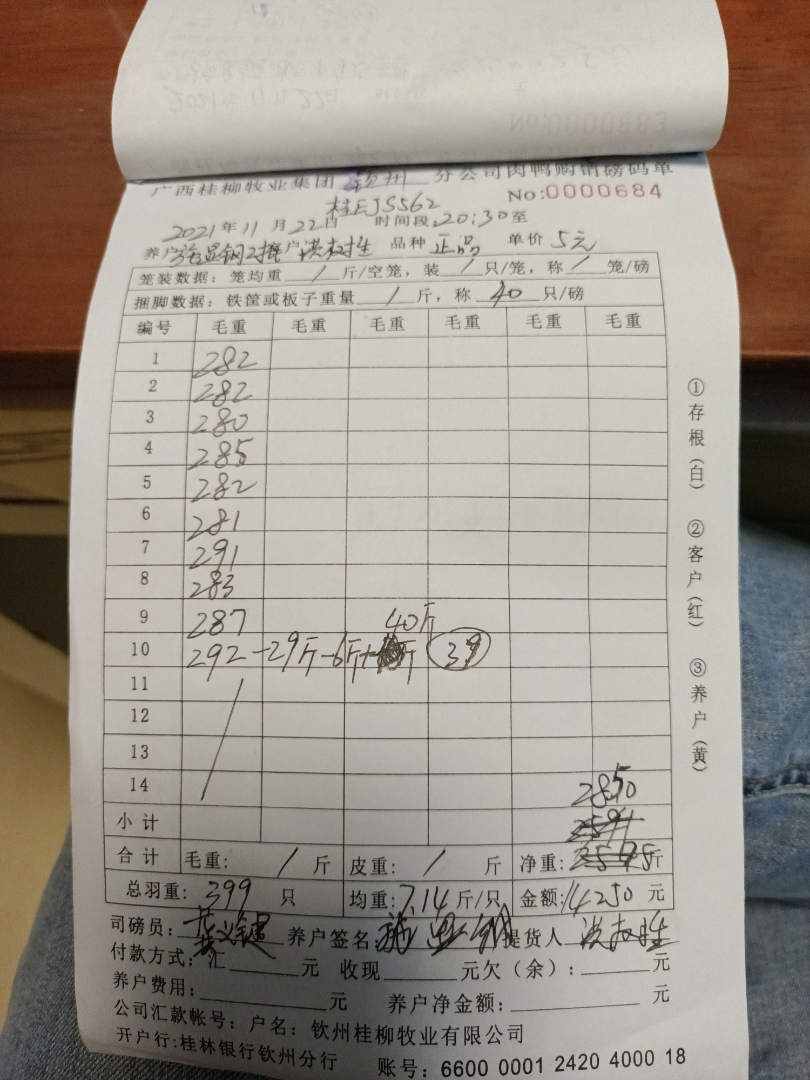 广西桂柳牧业集团 钦州 分公司肉鸭购销磅码单
No:0000684
桂EJS562
2021年11月22日 时间段:20:30至
养户 捕户 品种 正品 单价 5元
笼装数据: 笼均重 / 斤/空笼, 装 / 只/笼, 称 / 笼/磅
捆脚数据: 铁筐或板子重量 / 斤, 称 40 只/磅
编号 毛重 毛重 毛重 毛重 毛重 毛重
1 282
2 282
3 280
4 285
5 282
6 281
7 291
8 283
9 287 40斤
10 292 -29斤-6斤+ 斤 39
11
12
13
14 2850
小计
合计 毛重: / 斤 皮重: / 斤 净重: 斤
总羽重: 399 只 均重: 7.14 斤/只 金额: 14250 元
司磅员: 养户签名 提货人
付款方式: 汇 元 收现 元欠(余): 元
养户费用: 元 养户净金额: 元
公司汇款帐号: 户名: 钦州桂柳牧业有限公司
开户行:桂林银行钦州分行 账号: 6600 0001 2420 4000 18
①存根(白) ②客户(红) ③养户(黄)